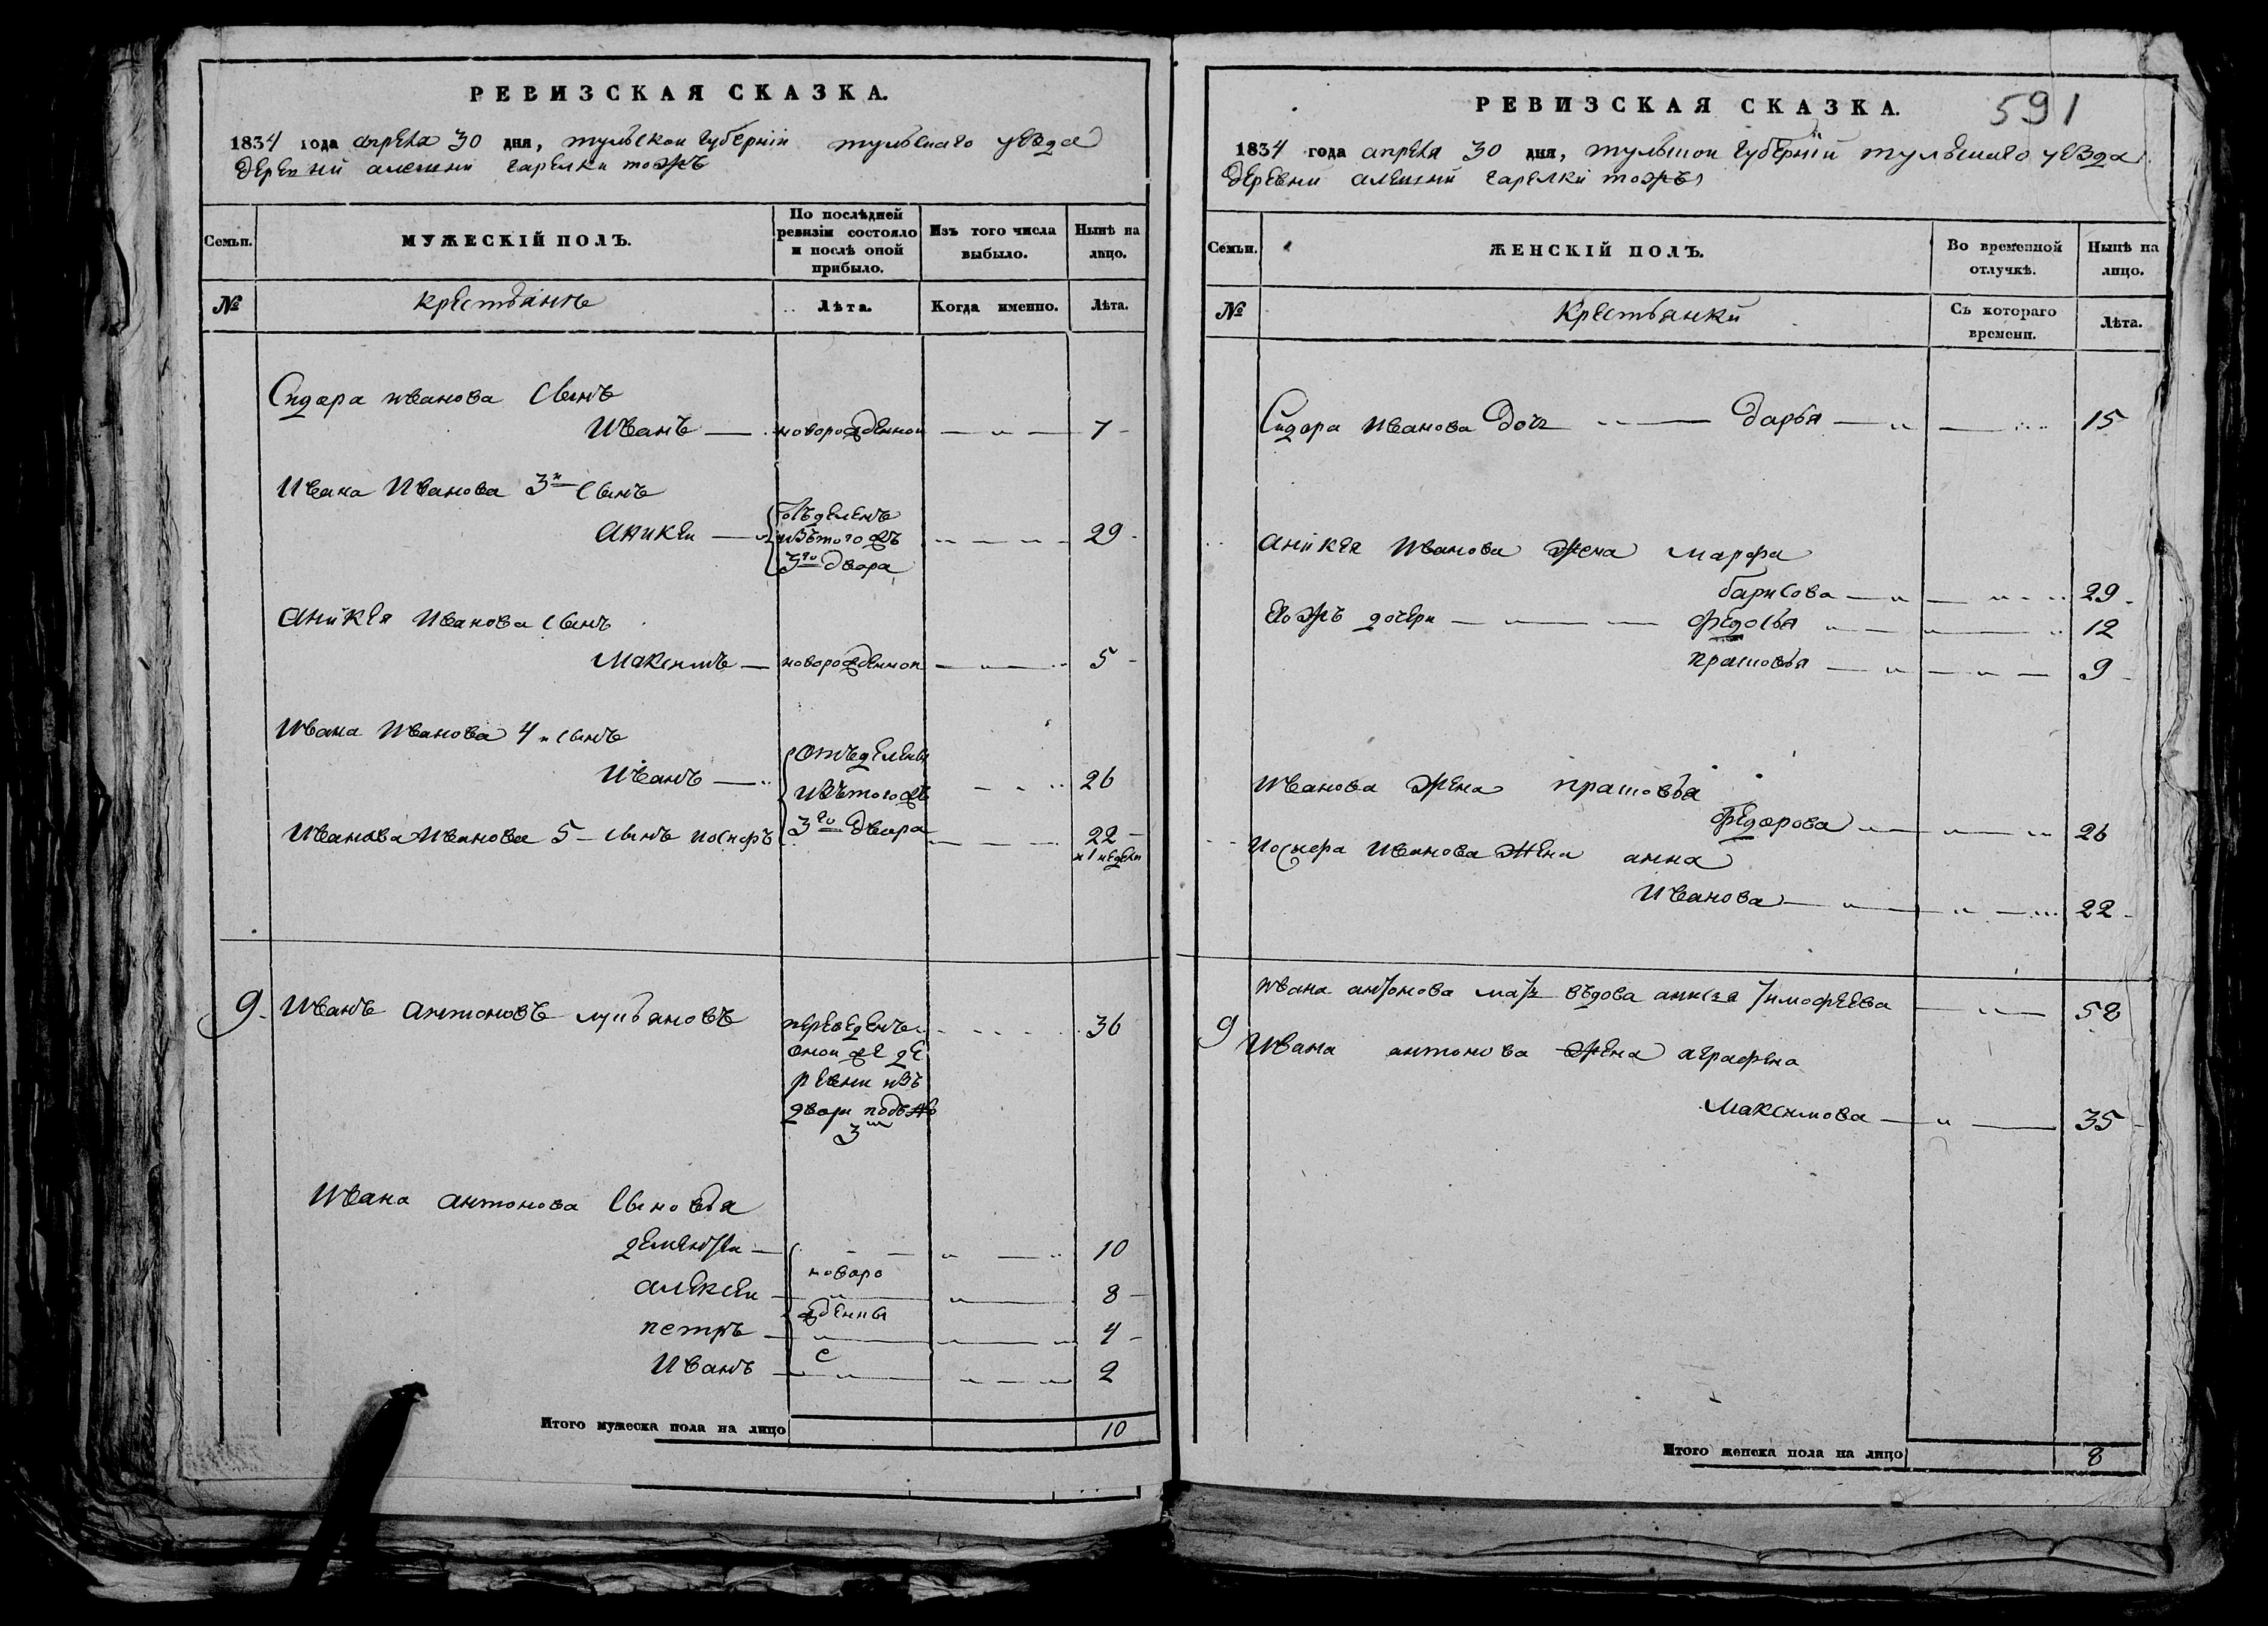 РЕВИЗСКАЯ СКАЗКА.
1834 года апреля 30 дня, тульской губернии тульскаго уезда
деревни алешни гарелки тожъ
Семьи.
МУЖЕСКІЙ ПОЛЪ.
По послѣдней ревизіи состояло и послѣ оной прибыло.
Изъ того числа выбыло.
Нынѣ на лицо.
№
крестьяне
Лѣта.
Когда именно.
Лѣта.
Сидора иванова сынъ
Иванъ — новорожденной — „ — 7
Ивана Иванова 3й сынъ
аникеи — отъделенъ изъ того жъ 3го двора — 29
аникея Иванова сынъ
Максимъ — новорожденной — „ — 5
Ивана Иванова 4й сынъ
Иванъ — отъделены изътогожъ 3го двора — 26
Иванова Иванова 5 сынъ иосифъ — 22
и 1 недели
9. Иванъ антоновъ лукьяновъ — 36
переведенъ
оной же де
ревни изъ
двора подъ №
3м
Ивана антонова сыновья
дементеи — „ — 10
новоро
алексеи — „ — 8
жденны
петръ — „ — 4
е
Иванъ — „ — 2
Итого мужеска пола на лицо 10
591
РЕВИЗСКАЯ СКАЗКА.
1834 года апреля 30 дня, тульской губерний тульскаго уезда
деревни алешни гарелки тожъ
Семьи.
ЖЕНСКІЙ ПОЛЪ.
Во временной отлучкѣ.
Нынѣ на лицо.
№
Крестьянки
Съ котораго времени.
Лѣта.
Сидора Иванова дочь — дарья — „ — 15
аникея Иванова жена марфа
барисова — „ — 29
Ево жъ дочери — федосья — „ — 12
прасковья — „ — 9
Иванова жена прасковья
федорова — „ — 26
иосифа Иванова жена анна
Иванова — „ — 22
ивана антонова мать въдова анисья тимофеева — „ — 58
9 Ивана антонова жена аграфена
Максимова — „ — 35
Итого женска пола на лицо 8